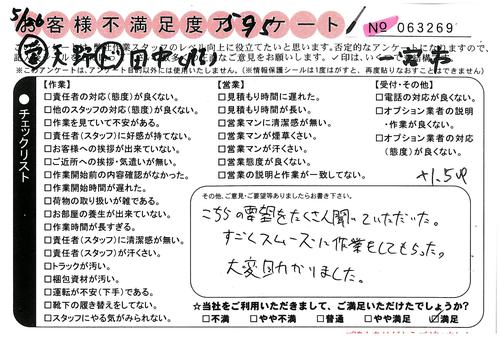 お客様不満足度アンケート
No 063269
5/26
595
●チェックリスト
【作業】
□責任者の対応(態度)が良くない。
□他のスタッフの対応(態度)が良くない。
□作業を見ていて不安がある。
□責任者(スタッフ)に好感が持てない。
□お客様への挨拶が出来ていない。
□ご近所への挨拶・気遣いが無い。
□作業開始前の内容確認がなかった。
□作業開始時間が遅れた。
□荷物の取り扱いが雑である。
□お部屋の養生が出来ていない。
□作業時間が長すぎる。
□責任者(スタッフ)に清潔感が無い。
□責任者(スタッフ)が汗くさい。
□トラックが汚い。
□梱包資材が汚い。
□運転が不安(下手)である。
□靴下の履き替えをしてない。
□スタッフにやる気がみられない。
【営業】
□見積もり時間に遅れた。
□見積もり時間が長い。
□営業マンに清潔感が無い。
□営業マンが煙草くさい。
□営業マンが汗くさい。
□営業態度が良くない。
□営業の説明と作業が一致してない。
【受付・その他】
□電話の対応が良くない。
□オプション業者の説明
・作業が良くない。
□オプション業者の対応
(態度)が良くない。
その他、ご意見・ご要望等ありましたらお書き下さい。
こちらの要望をたくさん聞いていただいた。
すごくスムーズに作業をしてもらった。
大変助かりました。
☆当社をご利用いただきまして、ご満足いただけたでしょうか?
□不満 □やや不満 □普通 □やや満足 ☑満足